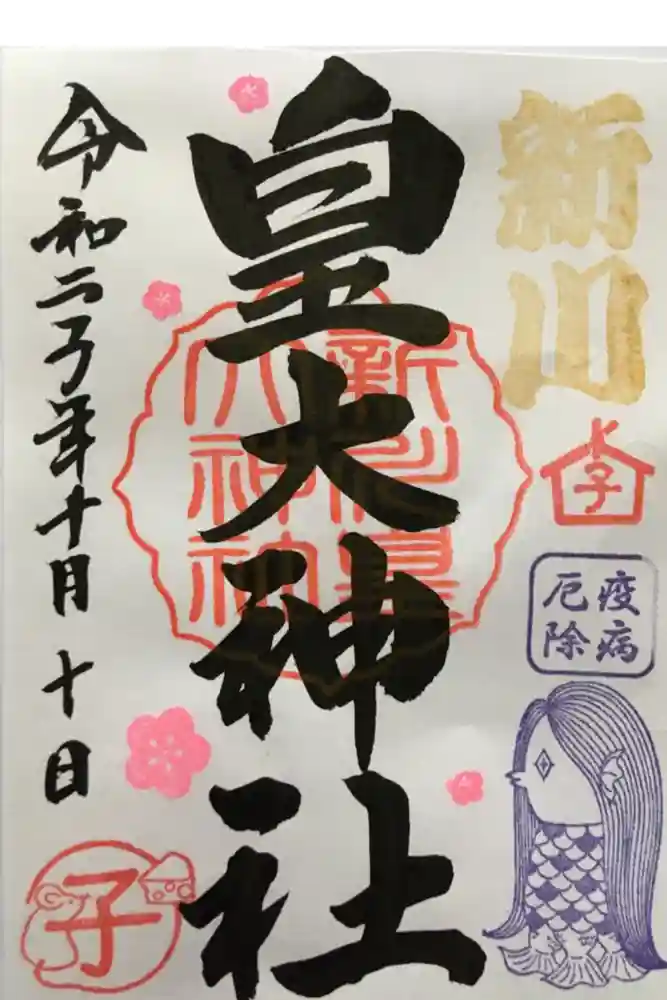 新川
字
疫病
厄除
皇大神社
新川皇
大神社
令和二子年十月十日
子